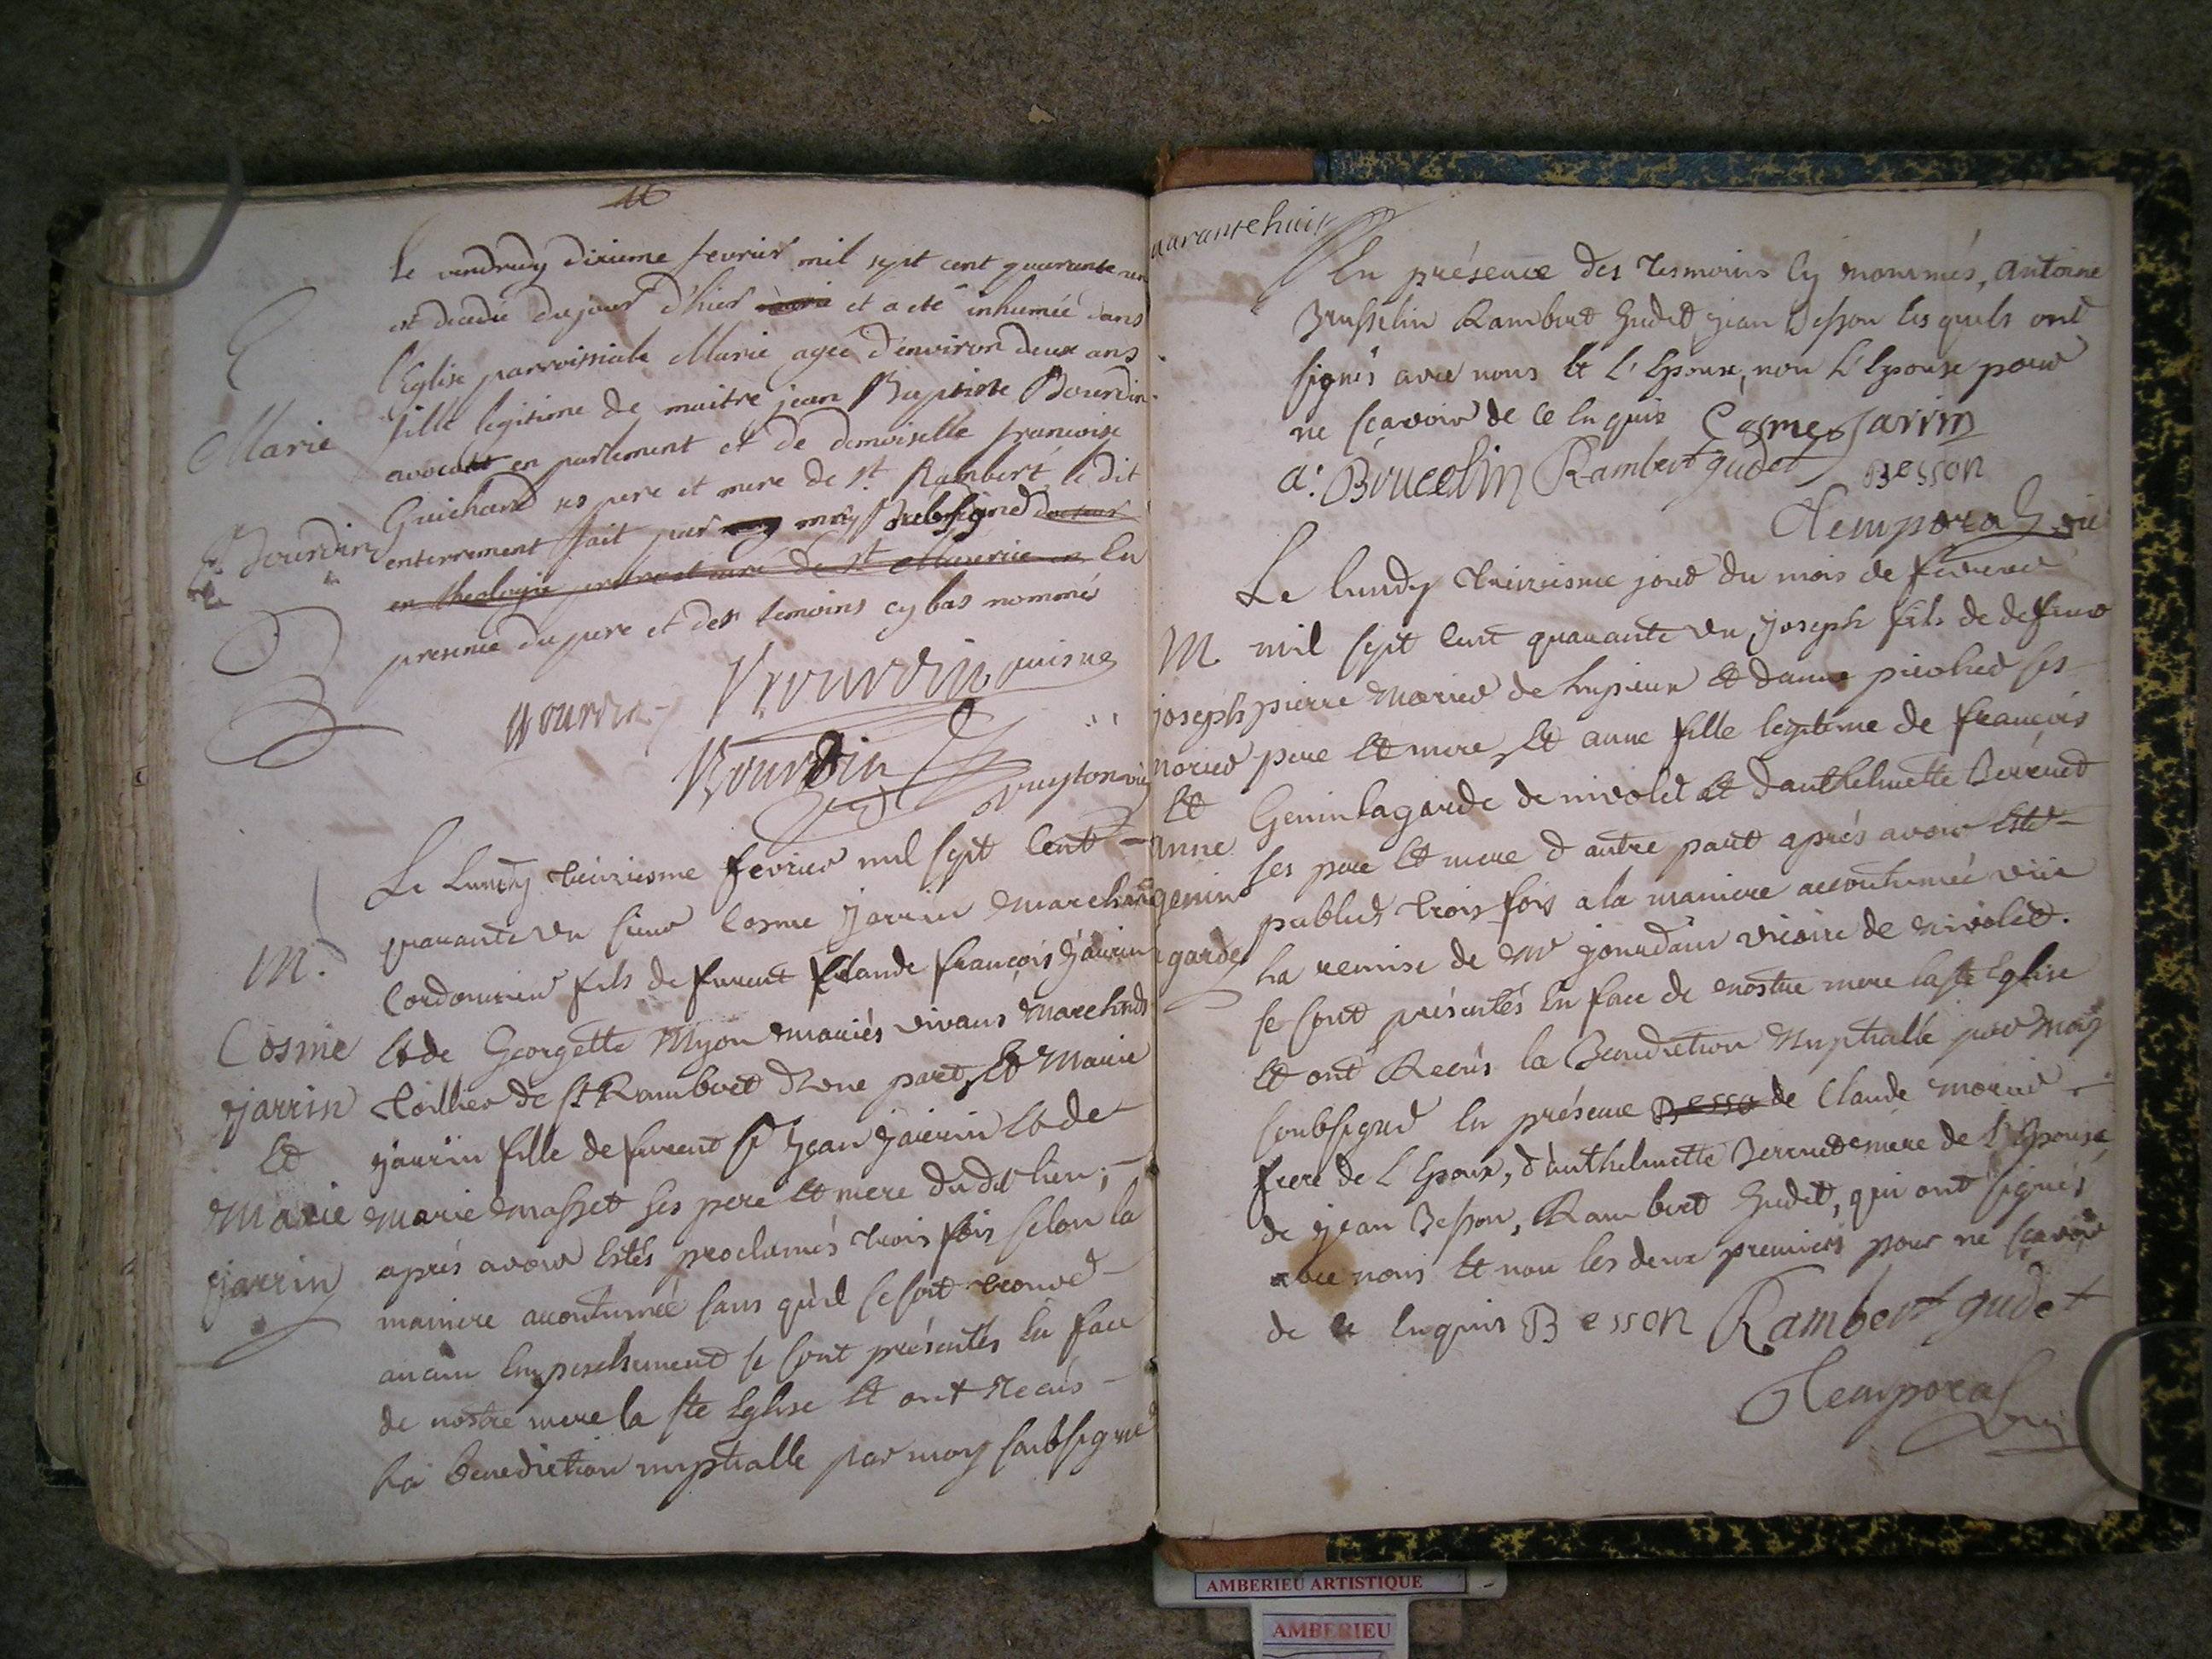 Le vendredy dixieme fevrier mil sept cent quarante un
est decedée du jour d'hier et a eté inhumée dans
l'Eglise parroissiale Marie agée d'environ deux ans
fille legitime de maitre jean Baptiste Bourdin
avocat en parlement et de demoiselle francoise
Guichard ses pere et mere de st Rambert, le dit
enterrement fait par moy soubsigné docteur
en theologie pretre et curé de st Maurice en En
presence du pere et des temoins cy bas nommés
Marie
Bourdin
Bourdin
Bourdin puisne
Bourdin
Le Lundy treiziesme fevrier mil sept Cent
quarante un sieur Cosme Jarrin marchand
Cordonnier fils de furent Claude françois Jarrin
Et de Georgette Myon mariés vivans marchands
toillier de st Rambert d'une part, Et Marie
Jarrin fille de furent sr Jean Jarrin Et de
Marie Masset ses pere Et mere dudit lieu,
aprés avoir Estés proclamés trois fois selon la
maniere accoutumée sans qu'il se soit trouvé
aucun Empeschement se sont présentés En face
de nostre mere la ste Eglise Et ont Recus
la benediction nuptialle par moy soubsigné
M.
Cosme
Jarrin
Et
Marie
Jarrin
quarante huit
En présence des tesmoins Cy nommés, Antoine
Brusselin Rambert Gudet Jean Besson lesquels ont
signés avec nous Et L'Epoux, non L'Epouse pour
ne sçavoir de ce Enquis Cosme Jarrin
a: Boucelin Rambert gudet Besson
Temporal vic
Le lundy treiziesme jour du mois de fevrier
mil sept Cent quarante un, Joseph fils de deffunt
pierre Morier de Et d'anne ses
pere Et mere, Et anne fille legitime de françois
Genin Lagarde de nivolet Et d'anthelmette Berruet
ses pere Et mere d'autre part aprés avoir Esté
publiés trois fois a la maniere accoutumée veüe
La remise de Mr Jourdain vicaire de nivolet.
se sont présentés En face de nostre mere la ste Eglise
Et ont Recus la Benediction Nuptialle par moy
soubsigné En présence Besso de Claude Morier
frere de L'Epoux, d'anthelmette Berruet mere de L'Epouse,
de Jean Besson, Rambert Gudet, qui ont signés
avec nous Et non les deux premiers pour ne sçavoir
de ce Enquis Besson Rambert gudet
Temporal vic
M.
joseph
morier
Et
Anne
genin
garde
AMBERIEU ARTISTIQUE
AMBERIEU